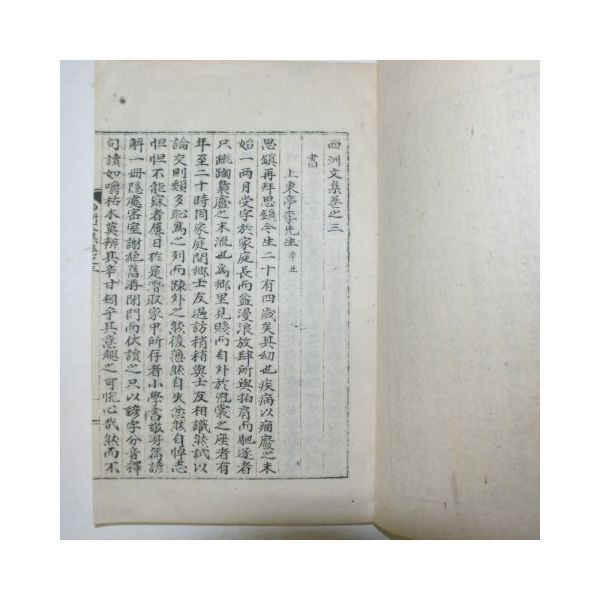 西洲文集卷之三
書
上東亭李先生 辛丑
思鎮再拜思鎮今生二十有四歲矣其幼也疾病以痼廢之末
始一兩月受字於家庭長而益漫浪放肆所與拍肩而馳逐者
只蹴踘梟盧之末流也爲鄉里見賤而自外於冠裳之座者有
年至二十時因家庭間鄉士友過訪稍稍與士友相識然試以
論交則類多詑爲之列而疎外之然後薾然自失忽然自悼恚
怛怛不能寐者屢日於是潛取家中所存者小學書敬身篇諺
解一冊隱處密室謝絕舊游閉門而伏讀之只以諺字分音釋
句讀如嚼枯木莫辨其辛甘矧乎其意趣之可悅心哉然而不